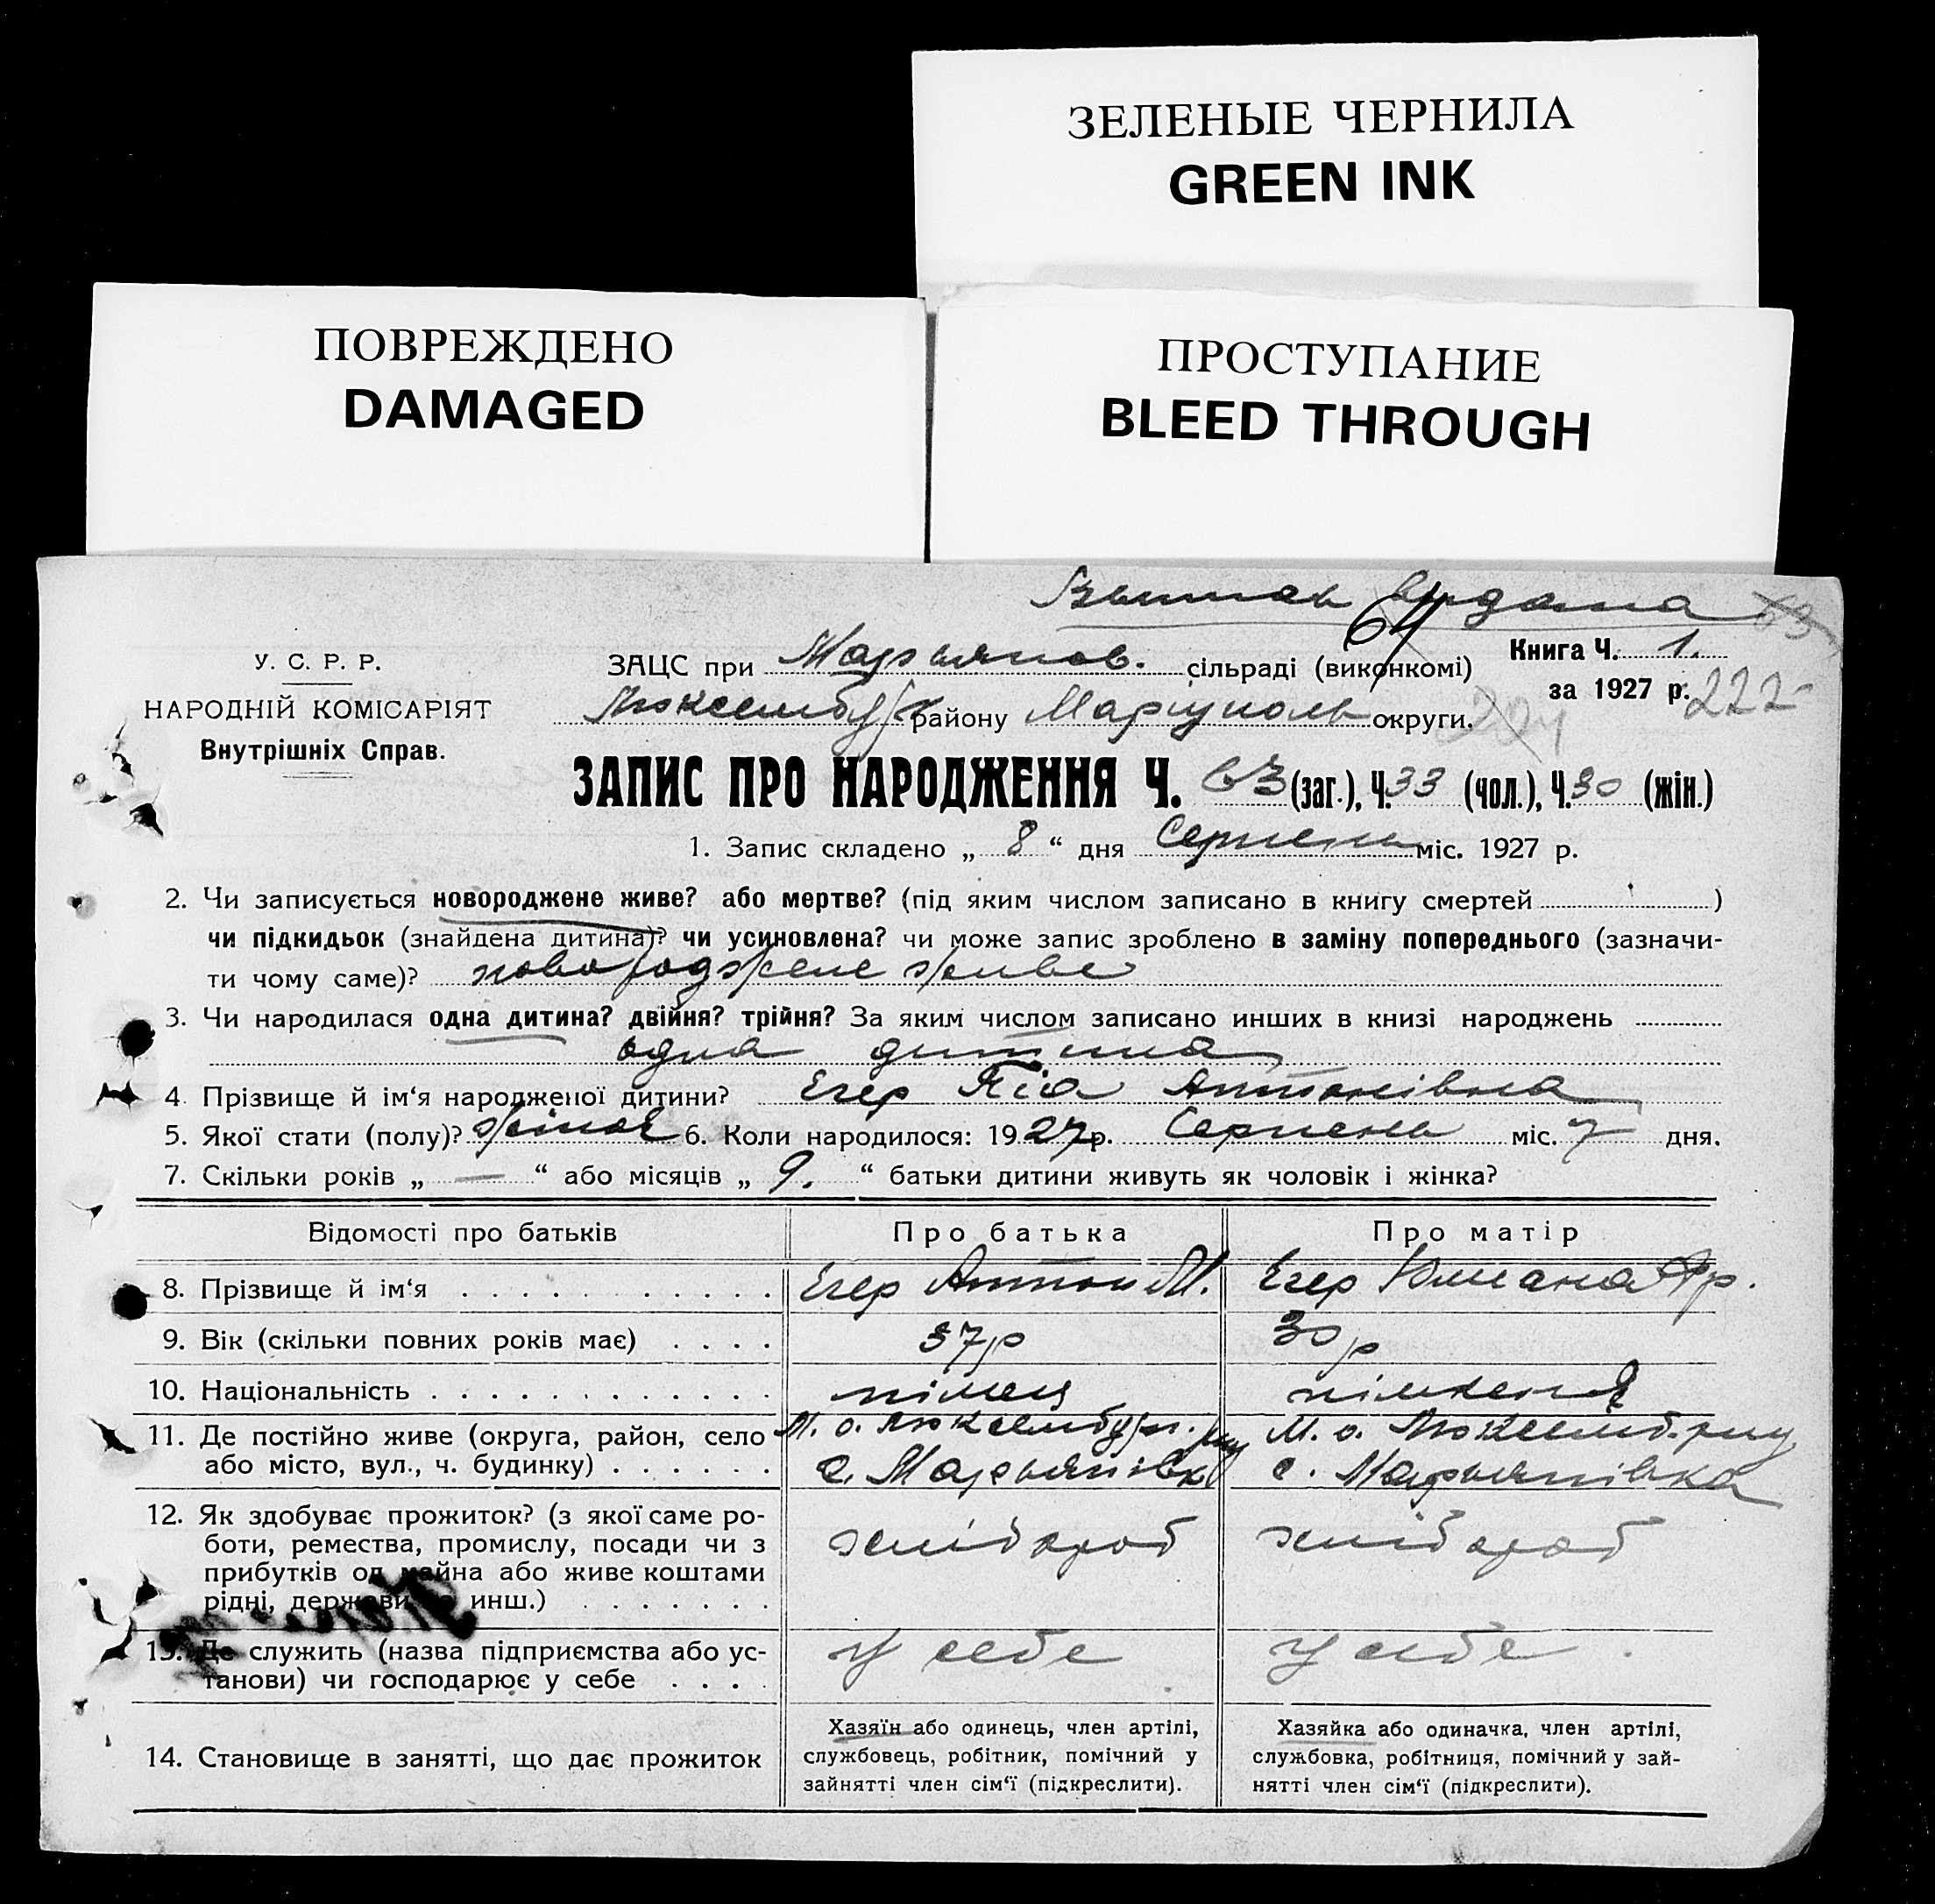 ЗЕЛЕНЫЕ ЧЕРНИЛА
GREEN INK
ПОВРЕЖДЕНО
DAMAGED
ПРОСТУПАНИЕ
BLEED THROUGH
64
63
У. С. Р. Р.
НАРОДНІЙ КОМІСАРІЯТ
Внутрішніх Справ.
ЗАЦС при Марьянов. сільраді (виконкомі)
Люксембург району Маріуполь округи.
Книга Ч. 1.
за 1927 р. 222
204
ЗАПИС ПРО НАРОДЖЕННЯ Ч. 63 (заг.), Ч. 33 (чол.), Ч. 30 (жін.)
1. Запис складено „ 8 “ дня Серпень міс. 1927 р.
2. Чи записується новороджене живе? або мертве? (під яким числом записано в книгу смертей )
чи підкидьок (знайдена дитина)? чи усиновлена? чи може запис зроблено в заміну попереднього (зазначи-
ти чому саме)? новороджене живе
3. Чи народилася одна дитина? двійня? трійня? За яким числом записано инших в книзі народжень
одна дитина
4. Прізвище й ім‘я народженої дитини? Егер Піа Антонівна
5. Якої стати (полу)? жіноч 6. Коли народилося: 1927 р. Серпень міс. 7 дня.
7. Скільки років „ — “ або місяців „ 9. “ батьки дитини живуть як чоловік і жінка?
Відомості про батьків Про батька Про матір
8. Прізвище й ім‘я Егер Антон М. Егер Юлиана Фр.
9. Вік (скільки повних років має) 37 р 30 р
10. Національність німець німкеня
11. Де постійно живе (округа, район, село М. о. Люксембург. р-ну М. о. Люксемб. р-ну
або місто, вул., ч. будинку) с. Марьянівка с. Марьянівка
12. Як здобуває прожиток? (з якої саме ро-
боти, ремества, промислу, посади чи з хлібороб хлібороб
прибутків од майна або живе коштами
рідні, держави инш.)
13. Де служить (назва підприємства або ус- у себе у себе.
танови) чи господарює у себе
14. Становище в занятті, що дає прожиток
Хазяїн або одинець, член артілі,
службовець, робітник, помічний у
зайнятті член сім‘ї (підкреслити).
Хазяйка або одиначка, член артілі,
службовка, робітниця, помічний у зай-
нятті член сім‘ї (підкреслити).